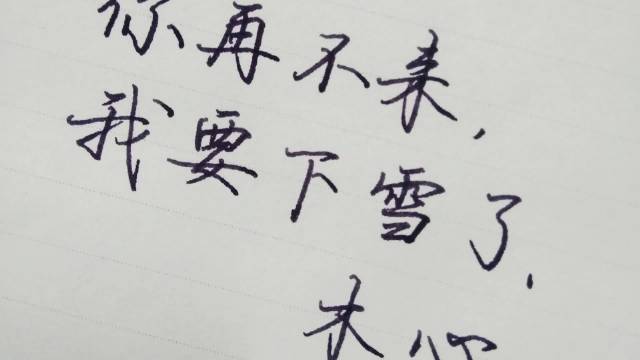 你再不来,
我要下雪了.
木心